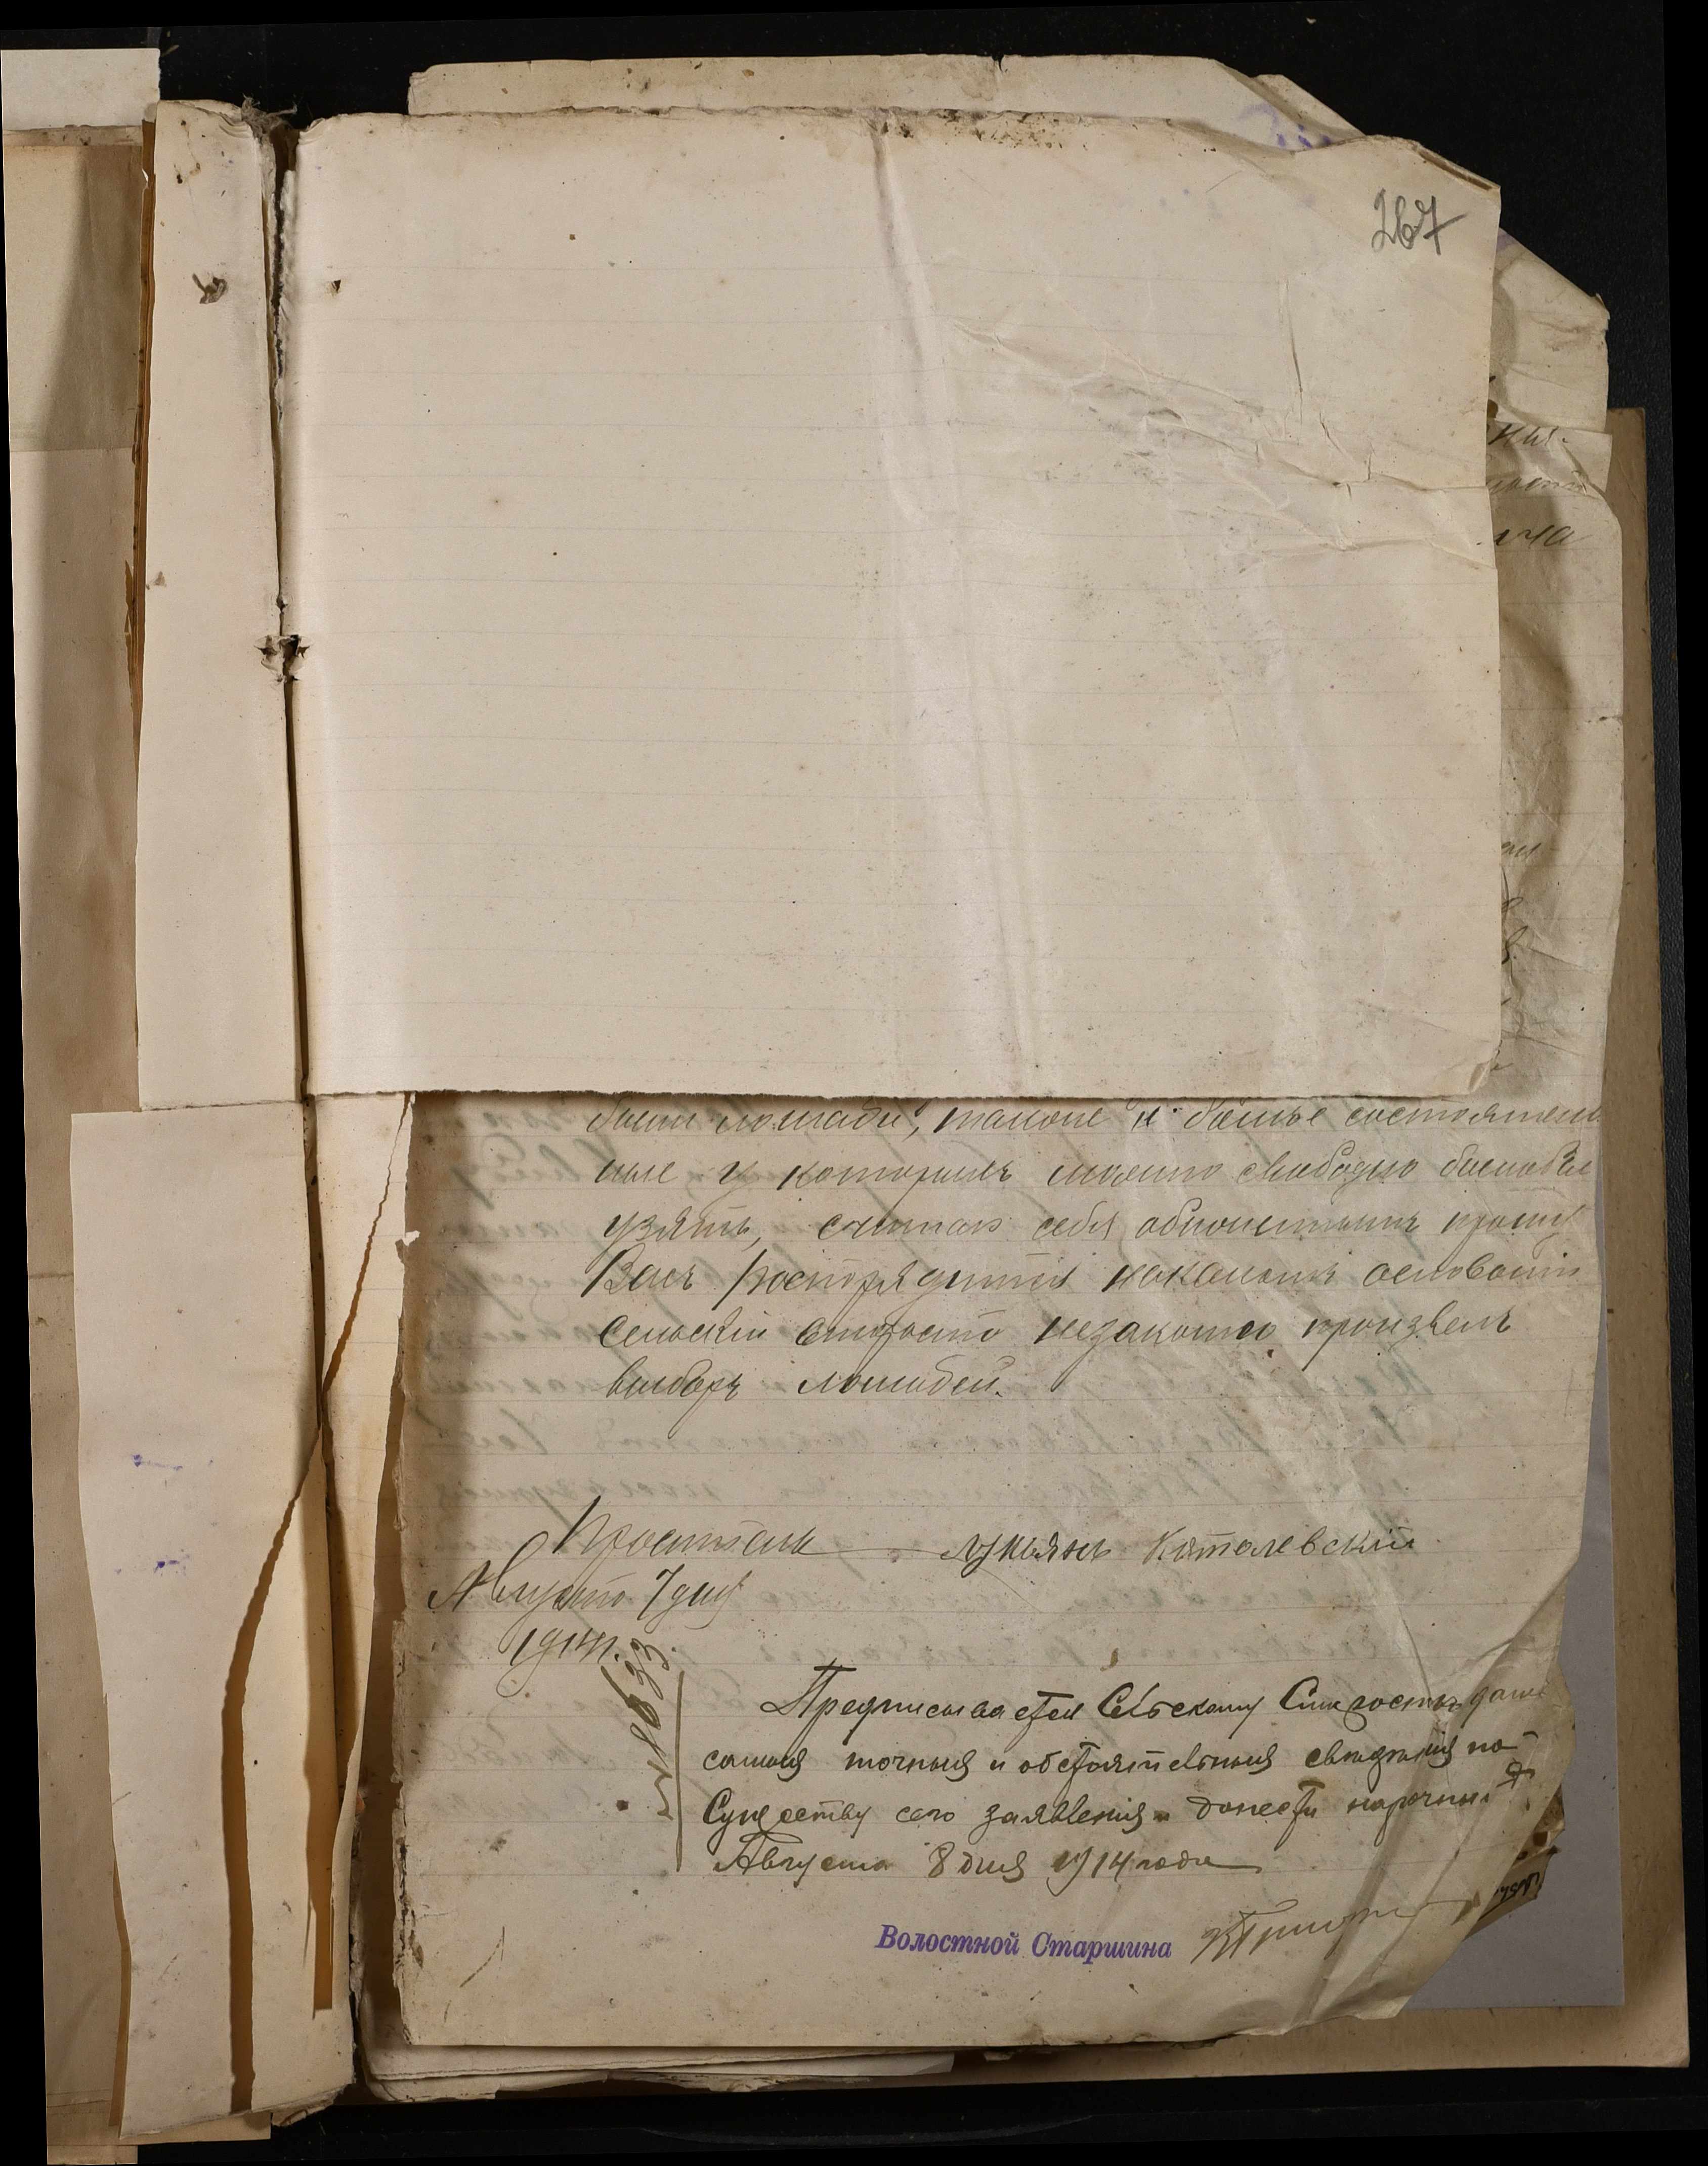 267
были лошади, также и более состоятель
ные у которыхъ можно свободно было бы
узять, считаю себя обиженнымъ прошу
Васъ роспорядится накакомъ основаніи
Сельскій староста незаконно произвелъ
выборъ лошадей.
Проситель Лукьянъ Котолевскій
Августа 7 дня
1914 г.
№ 1863
Предписывается Сельскому Старостѣ дать
самыя точныя и обстоятельныя свѣдѣнія по
Существу сего заявленія и донести нарочнымъ
Августа 8 дня 1914 года
Волостной Старшина